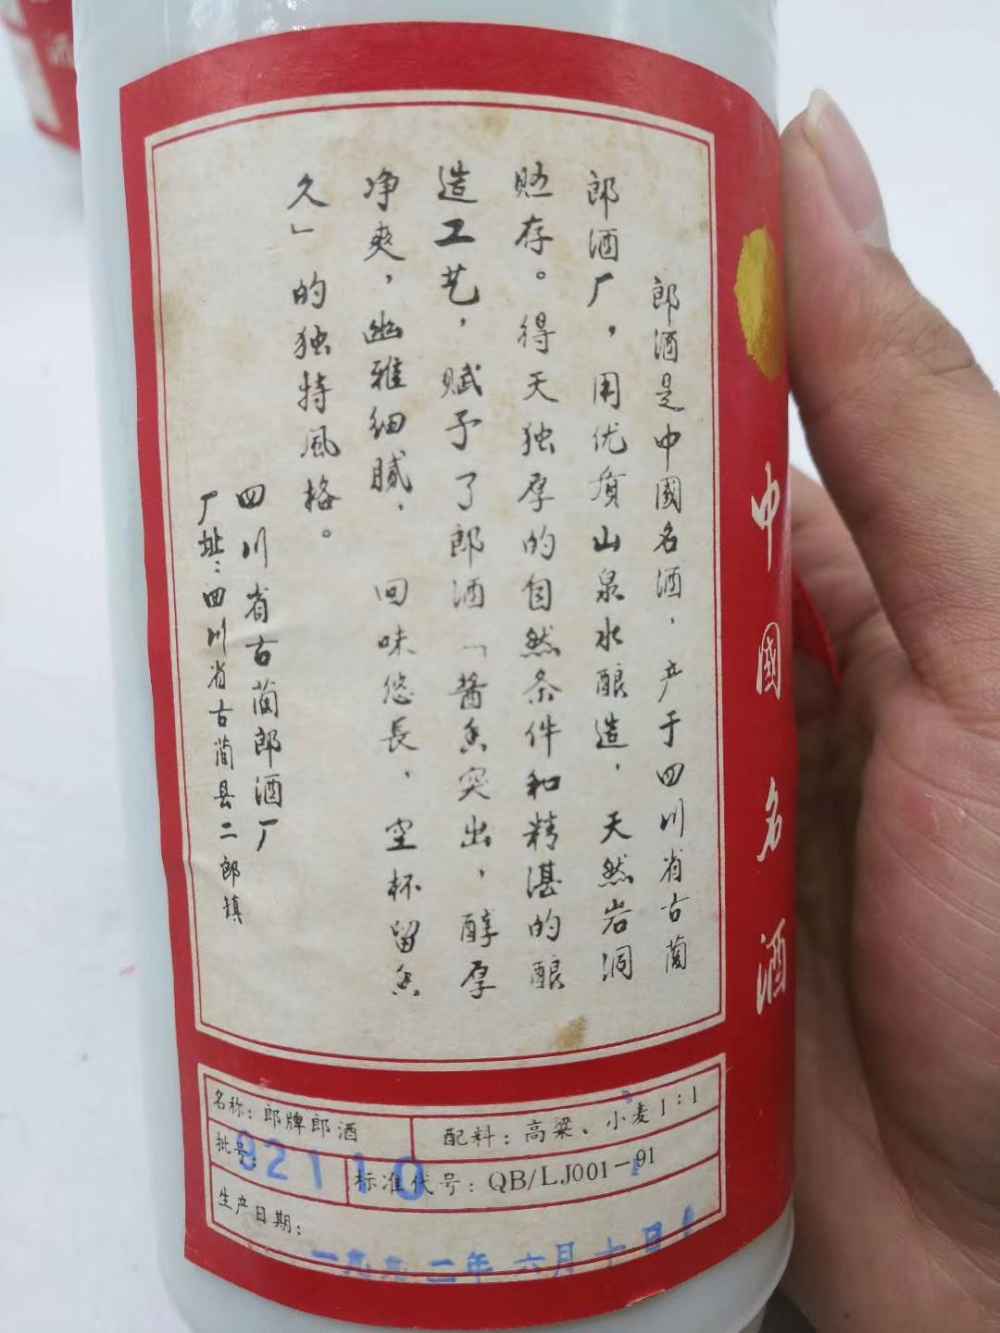 中國名酒
郎酒是中國名酒，产于四川省古藺
郎酒厂，用优质山泉水酿造，天然岩洞
贮存。得天独厚的自然条件和精湛的酿
造工艺，赋予了郎酒「酱香突出，醇厚
净爽，幽雅细腻，回味悠長，空杯留香
久」的独特風格。
四川省古藺郎酒厂
厂址：四川省古藺县二郎镇
名称：郎牌郎酒
配料：高粱、小麦1:1
批号：92110
标准代号：QB/LJ001-91
生产日期：
一九九二年六月十日